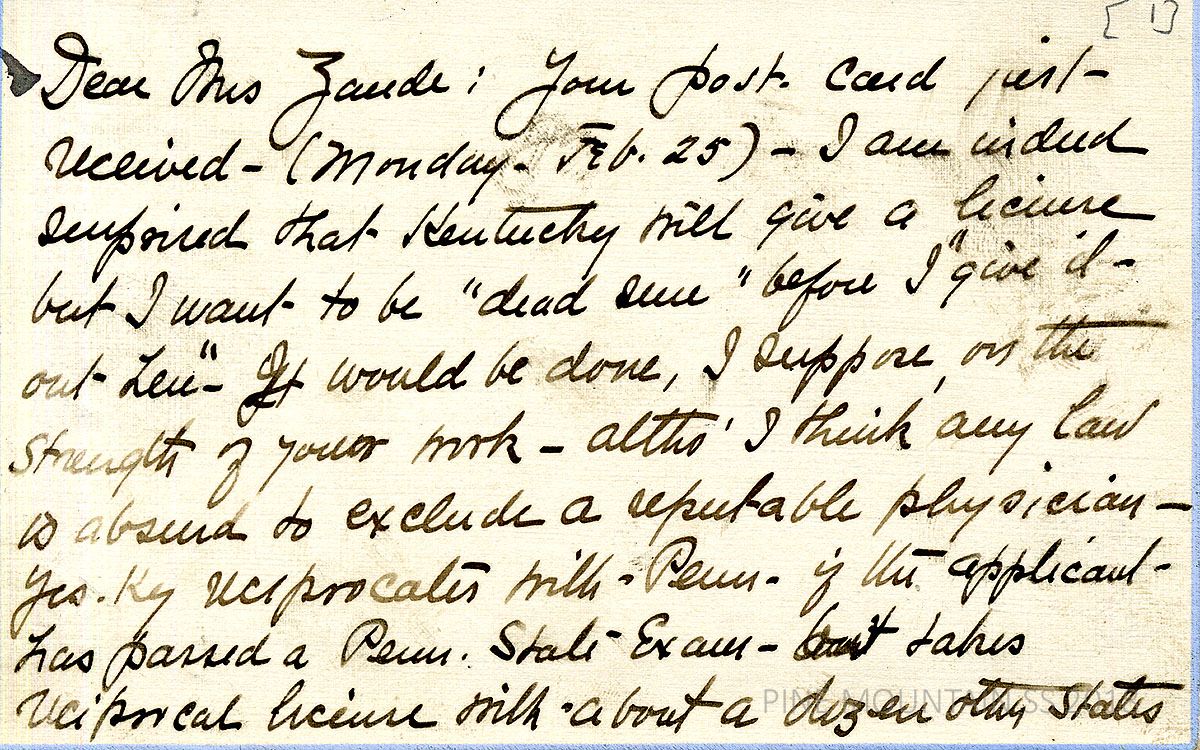 [1]
Dear Mrs Zande: Your post. Card just-
received- (Monday- Feb. 25) - I am indeed
surprised that Kentucky will give a license
but I want to be "dead sure" before I "give it-
out Len"- It would be done, I suppose, on the
strength of your work - altho' I think any law
is absurd to exclude a reputable physician-
Yes. Ky reciprocates with- Penn- if the applicant-
has passed a Penn. State Exam- takes
reciprocal license with- about a dozen other States
PINE MOUNTAIN SS